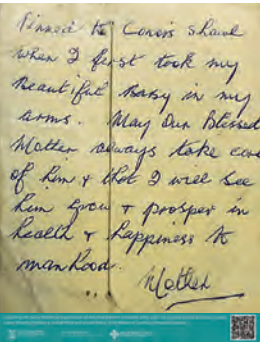 Pinned to Conor's Shawl
when I first took my
beautiful Baby in my
arms. May Our Blessed
Mother always take care
of him & that I will see
him grow & prosper in
health & happiness to
manhood.
Mother